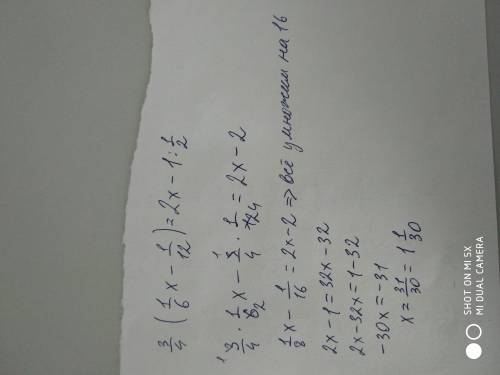 3/4 (1/6 x - 1/12) = 2x - 1 : 1/2
3/4 · 1/6 x - 3/4 · 1/12 = 2x - 2
1/8 x - 1/16 = 2x - 2 => всё умножаем на 16
2x - 1 = 32x - 32
2x - 32x = 1 - 32
-30x = -31
x = 31/30 = 1 1/30
SHOT ON MI 5X
MI DUAL CAMERA